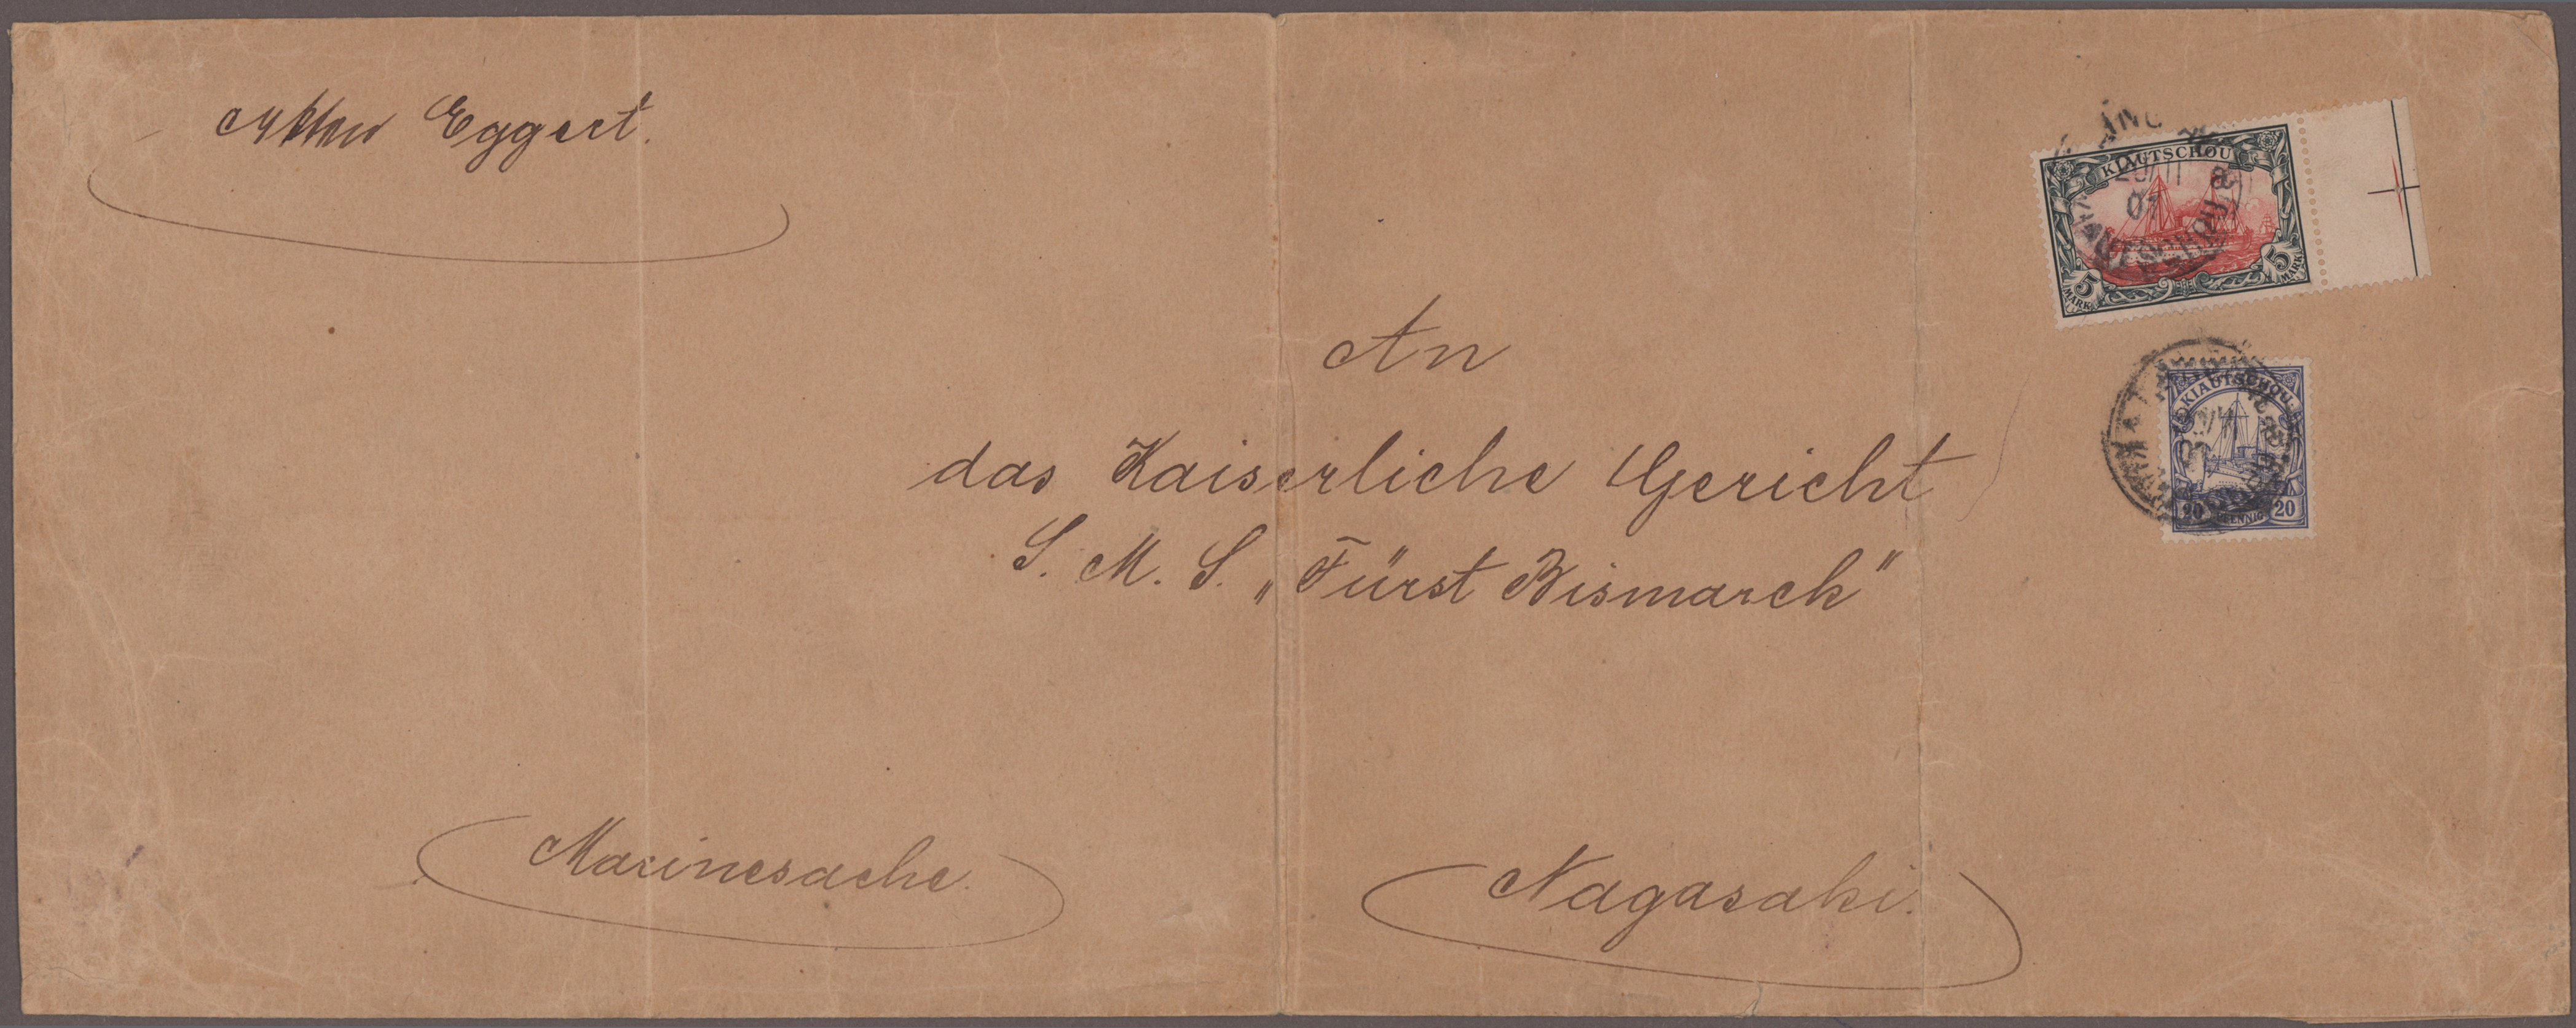 Akten Eggert.
KIAUTSCHOU
01
5 MARK
5 MARK
An
KIAUTSCHOU
20 PFENNIG 20
das Kaiserliche Gericht
S. M. S. „Fürst Bismarck"
Marinesache.
Nagasaki.